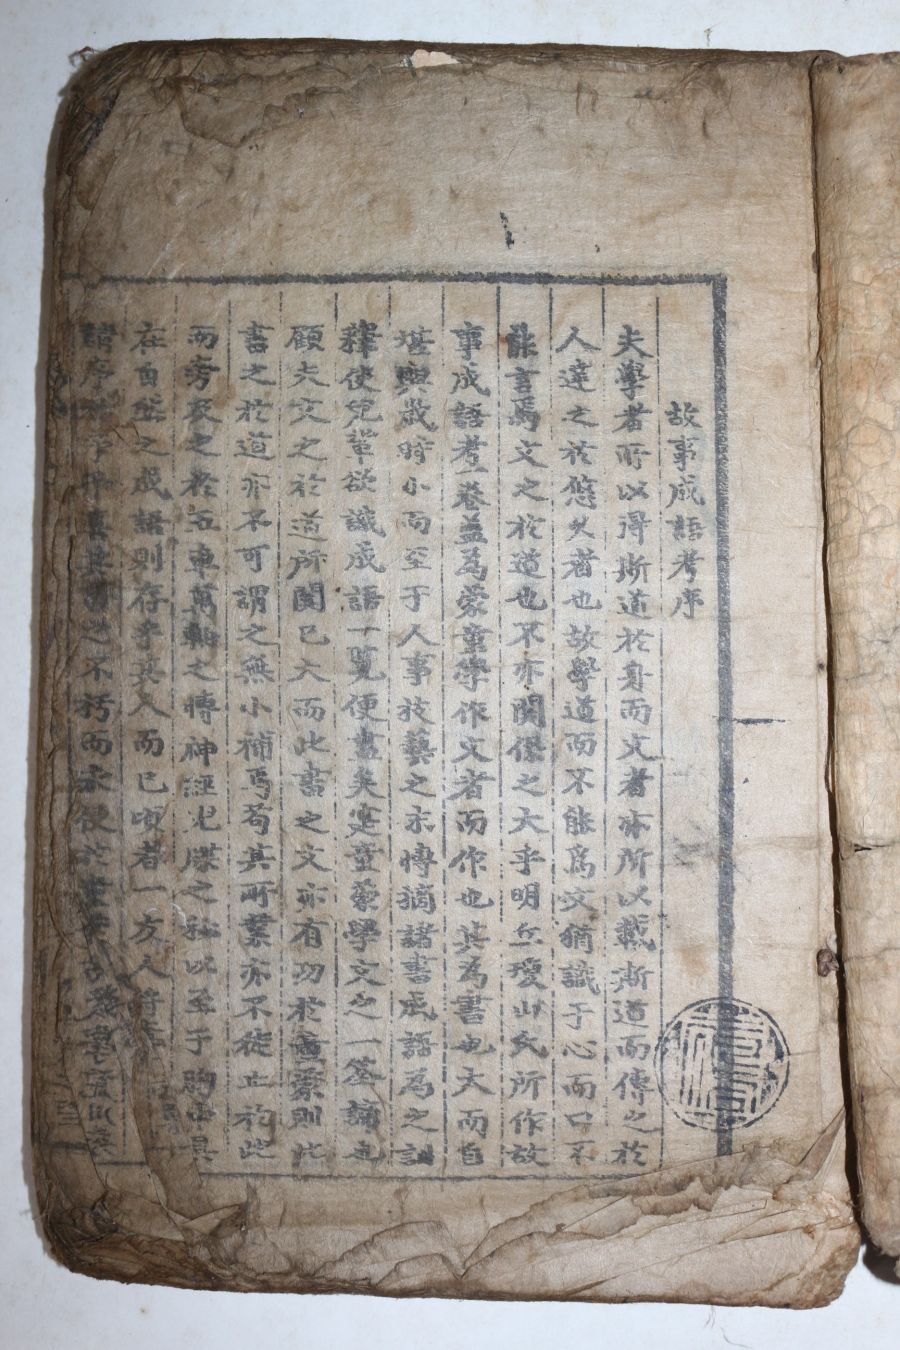 故事成語考序
夫學者所以得斯道於身而文者亦所以載斯道而傳之於
人達之於悠久者也故學道而不能爲文猶識于心而口不
能言焉文之於道也不亦関係之大乎明丘瓊山氏所作故
事成語考一卷盖爲蒙童學作文者而作也其為書也大而自
堪輿歲時小而至于人事技藝之末博摘諸書成語為之訓
釋使兒輩欲識成語一覧便盡矣寔童蒙學文之一筌蹄也
顧夫文之於道所関已大而此書之文亦有功於童蒙則此
書之於道亦不可謂之無小補焉苟其所業亦不徒止於此
而旁之於五車萬軸之博神之以至于胸中
在自然之成語則存乎其人而已頃者一方人
請序於予之不朽而